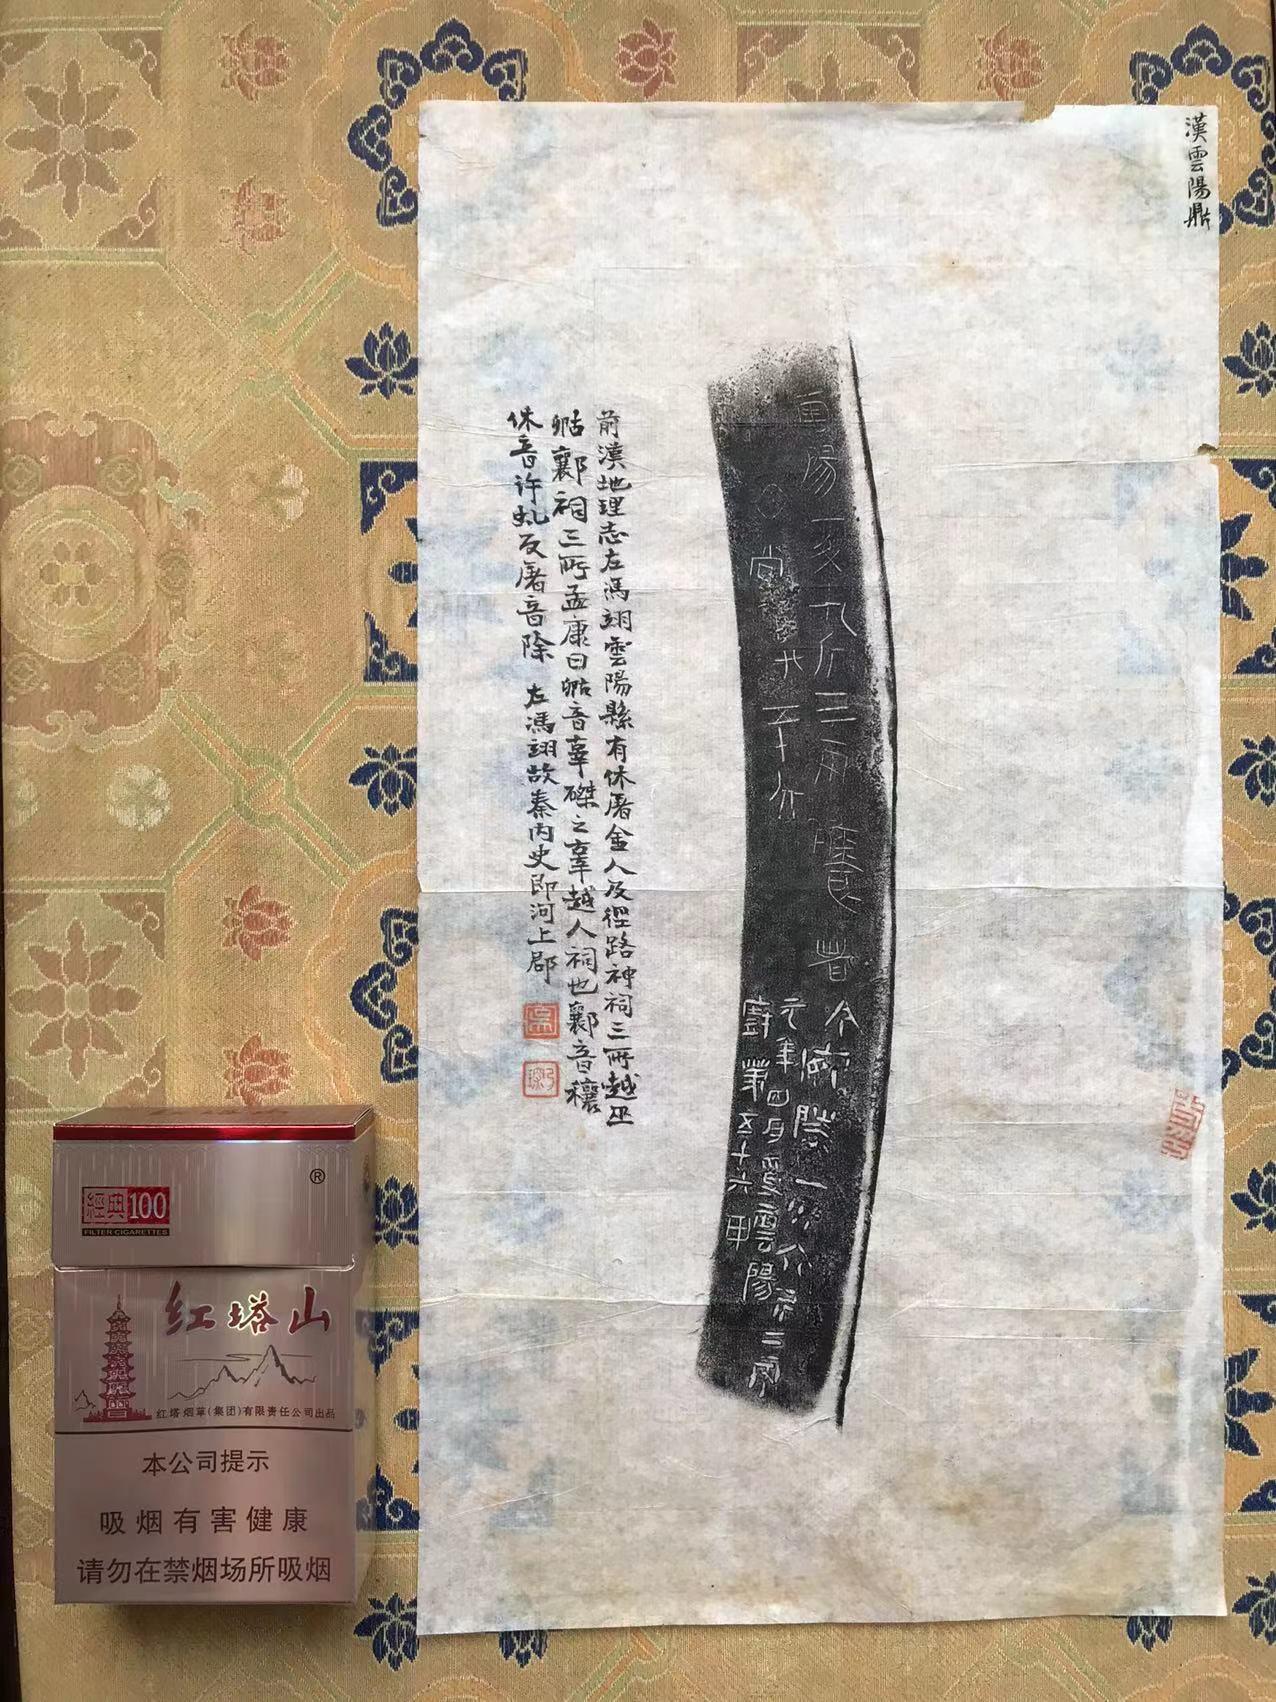 漢雲陽鼎
雲陽一
九斤三兩
尚
五十斤
元年四月受雲陽
廚第五十六甲
前漢地理志左馮翊雲陽縣有休屠金人及徑路神祠三所越巫
𩰫祠三所孟康曰音辜磔之辜越人祠也音穰
休音許虬反屠音除 左馮翊故秦內史即河上郡
經典100
®
FILTER CIGARETTES
红塔山
红塔烟草(集团)有限责任公司出品
本公司提示
吸烟有害健康
请勿在禁烟场所吸烟